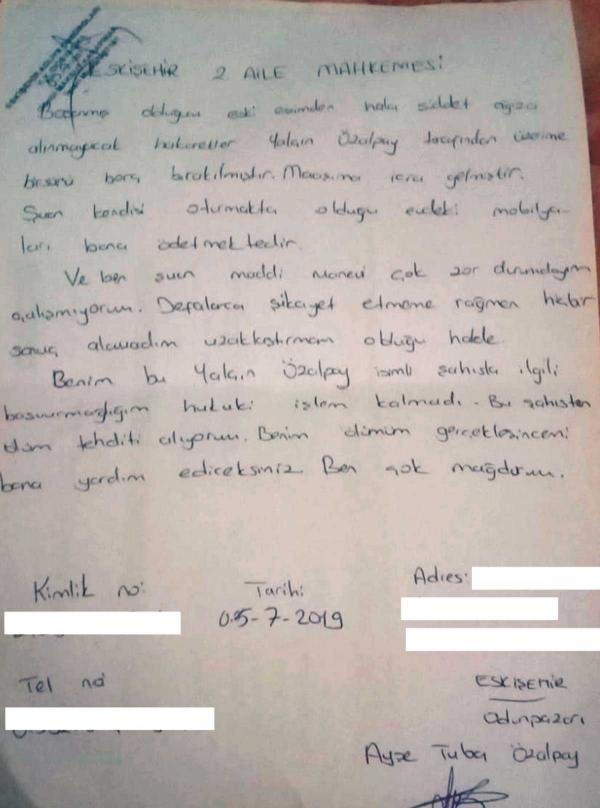 ESKİŞEHİR 2 AİLE MAHKEMESİ
Boşanmış olduğum eski eşimden hala şiddet ağıza
alınmayacak hakaretler Yalçın Özalpay tarafından üzerime
birsürü borç bırakılmıştır. Maaşıma icra gelmiştir.
Şuan kendisi oturmakta olduğu evdeki mobilya-
ları bana ödetmektedir.
Ve ben şuan maddi manevi çok zor durumdayım
çalışmıyorum. Defalarca şikayet etmeme rağmen hiçbir
sonuç alamadım uzaklaştırmam olduğu halde.
Benim bu Yalçın Özalpay isimli şahısla ilgili
başvurmadığım hukuki işlem kalmadı. Bu şahıstan
ölüm tehditi alıyorum. Benim ölümüm gerçekleşincemi
bana yardım ediceksiniz. Ben çok mağdurum.
Kimlik no:
Tarih:
Adres:
05-7-2019
Tel no
ESKİŞEHİR
Odunpazarı
Ayşe Tuba Özalpay